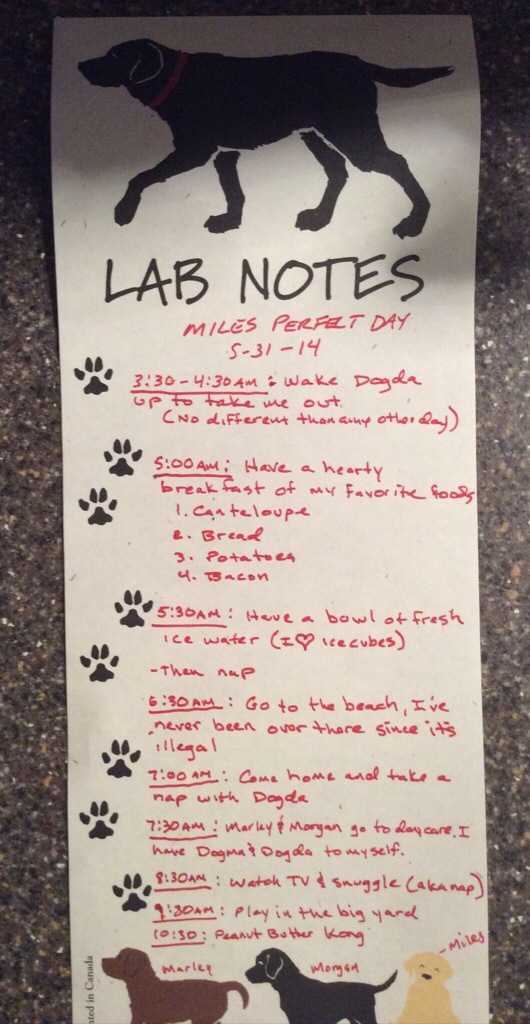 LAB NOTES
MILES PERFECT DAY
5-31-14
3:30-4:30AM: Wake Dogda
up to take me out.
(No different than any other day)
5:00AM: Have a hearty
breakfast of my favorite foods
1. Canteloupe
2. Bread
3. Potatoes
4. Bacon
5:30AM: Have a bowl of fresh
ice water (I♡ icecubes)
-Then nap
6:30AM: Go to the beach, I've
never been over there since it's
illegal
7:00AM: Come home and take a
nap with Dogda
7:30AM: Marley & Morgan go to daycare. I
have Dogma & Dogda to myself.
8:30AM: Watch TV & snuggle (aka nap)
9:30AM: Play in the big yard
10:30: Peanut Butter Kong
Marley
Morgan
-Miles
nted in Canada